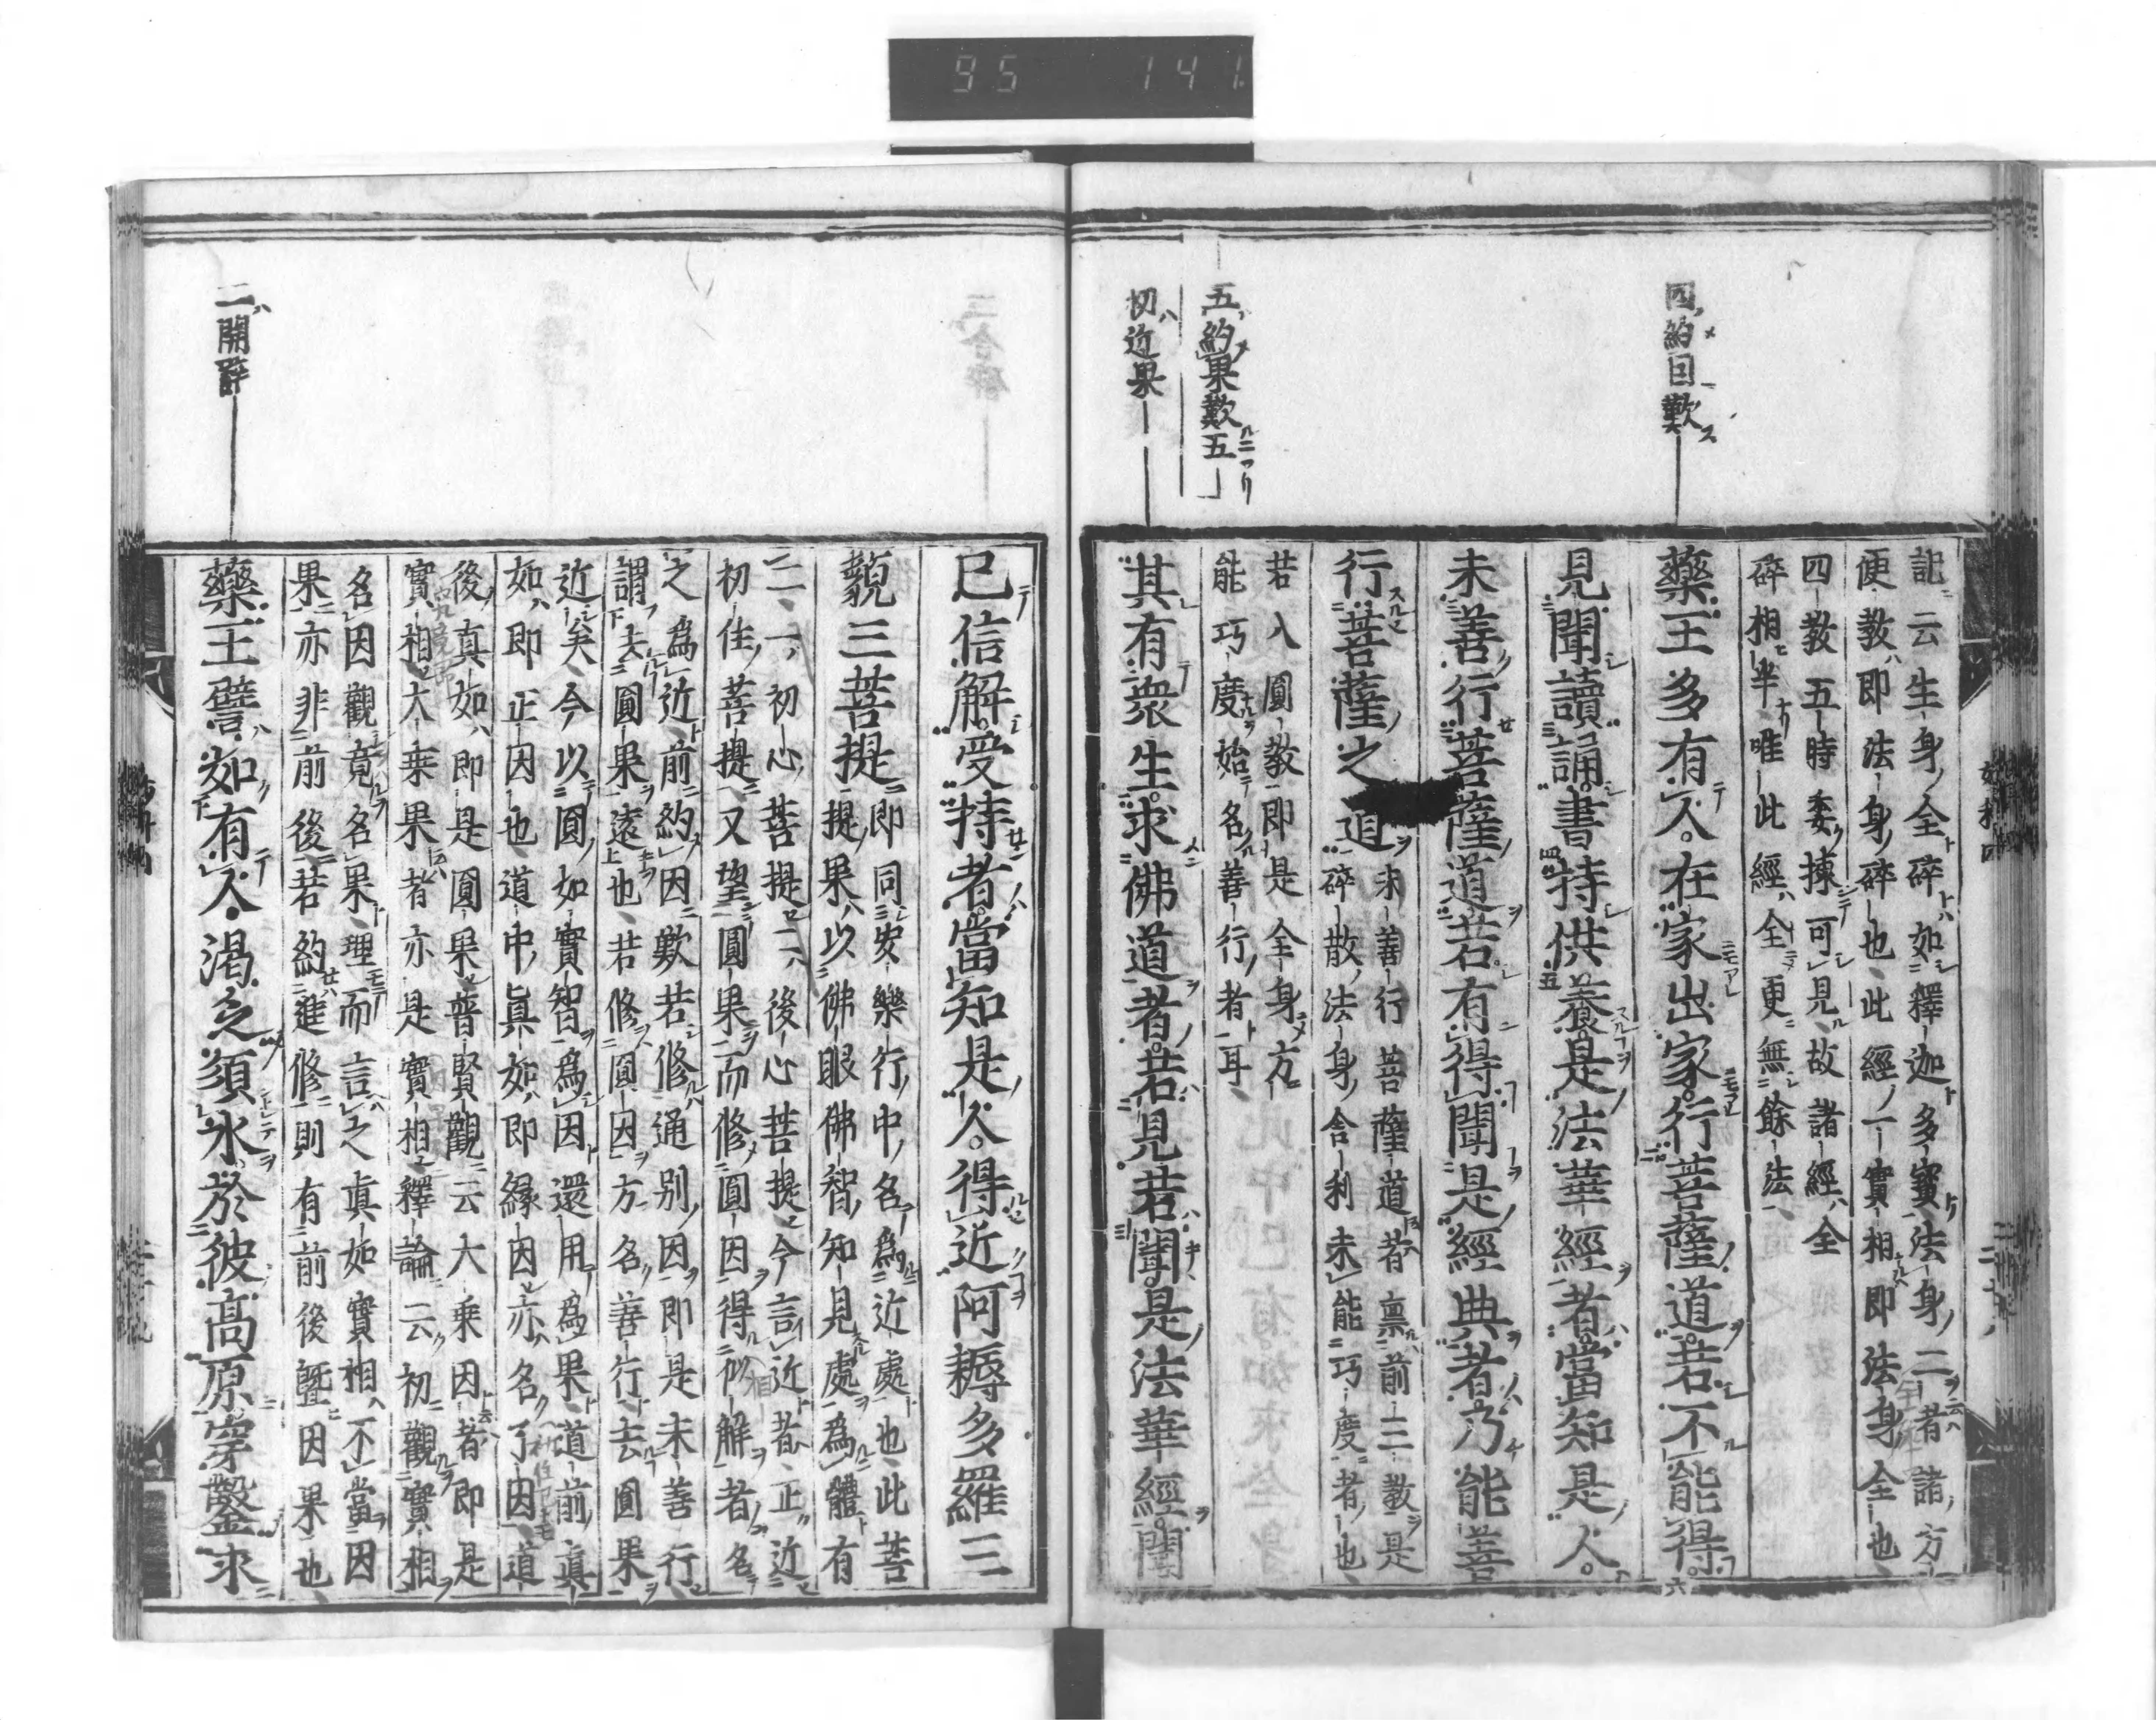 95 141
四約因歎
五約果歎五
初近果
記云生身全碎如釋迦多寶法身二者諸方
便教即法身碎也此經一實相即法身全也
四教五時委揀可見故諸經全
碎相半唯此經全更無餘法
藥王多有人在家出家行菩薩道若不能得
見聞讀誦書持供養是法華經者當知是人
未善行菩薩道若有得聞是經典者乃能善
行菩薩之道
未善行菩薩道者稟前三教是
碎散法身舍利未能巧度者也
若入圓教即是全身方
能巧度始名善行者耳
其有衆生求佛道者若見若聞是法華經聞
二開譬
已信解受持者當知是人得近阿耨多羅三
藐三菩提
即同安樂行中名為近處也此菩
提果以佛眼佛智知見處為體有
二一初心菩提二後心菩提今言近者正近
初住菩提又望圓果而修圓因得相似解者名
之為近前約因歎若修通別因即是未善行
謂去圓果遠也若修圓因方名善行去圓果
近矣今以圓如實智為因還用為果道前真
如即正因也道中真如即緣因亦名了因道
後真如即是圓果普賢觀云大乘因者即是
實相大乘果者亦是實相釋論云初觀實相
名因觀竟名果理而言之真如實相不當因
果亦非前後若約進修則有前後曁因果也
藥王譬如有人渴乏須水於彼高原穿鑿求